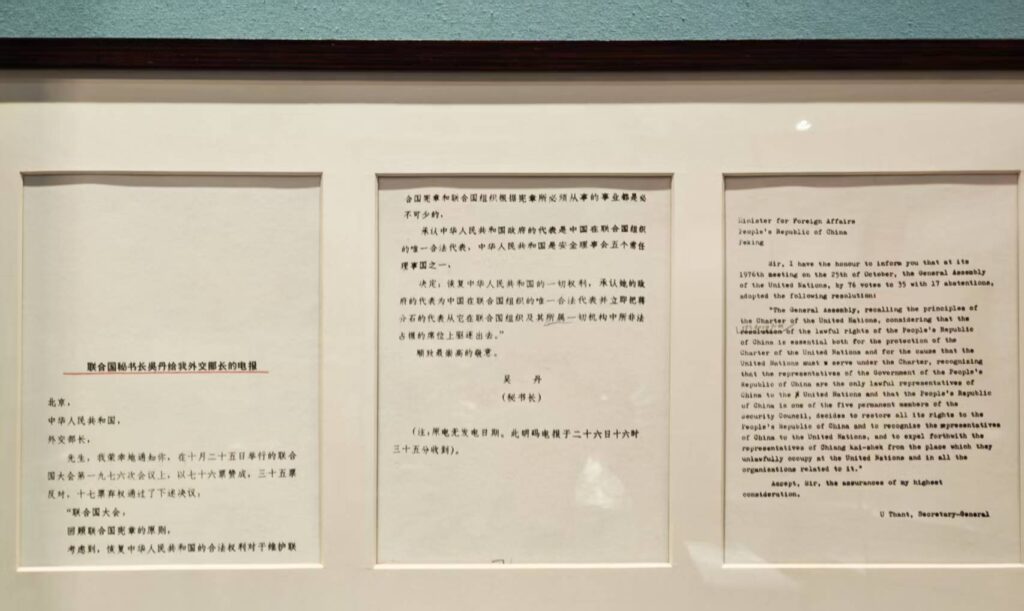 联合国秘书长吴丹给我外交部长的电报
北京，
中华人民共和国，
外交部长，
先生，我荣幸地通知你，在十月二十五日举行的联合
国大会第一九七六次会议上，以七十六票赞成，三十五票
反对，十七票弃权通过了下述决议：
“联合国大会，
回顾联合国宪章的原则，
考虑到，恢复中华人民共和国的合法权利对于维护联
合国宪章和联合国组织根据宪章所必须从事的事业都是必
不可少的，
承认中华人民共和国政府的代表是中国在联合国组织
的唯一合法代表，中华人民共和国是安全理事会五个常任
理事国之一，
决定：恢复中华人民共和国的一切权利，承认她的政
府的代表为中国在联合国组织的唯一合法代表并立即把蒋
介石的代表从它在联合国组织及其所属一切机构中所非法
占据的席位上驱逐出去。”
顺致最崇高的敬意。
吴 丹
(秘书长)
(注：原电无发电日期。此明码电报于二十六日十六时
三十五分收到)。
Minister for Foreign Affairs
People's Republic of China
Peking
Sir, I have the honour to inform you that at its
1976th meeting on the 25th of October, the General Assembly
of the United Nations, by 76 votes to 35 with 17 abstentions,
adopted the following resolution:
"The General Assembly, recalling the principles of
the Charter of the United Nations, considering that the
of the lawful rights of the People's Republic
of China is essential both for the protection of the
Charter of the United Nations and for the cause that the
United Nations must serve under the Charter, recognizing
that the representatives of the Government of the People's
Republic of China are the only lawful representatives of
China to the United Nations and that the People's Republic
of China is one of the five permanent members of the
Security Council, decides to restore all its rights to the
People's Republic of China and to recognise the representatives
of China to the United Nations, and to expel forthwith the
representatives of Chiang kai-shek from the place which they
unlawfully occupy at the United Nations and in all the
organizations related to it."
Accept, Sir, the assurances of my highest
consideration.
U Thant, Secretary-General